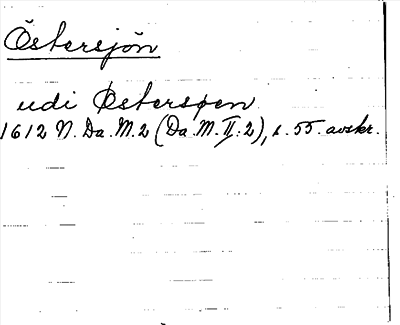 Östersjön
udi Østersøen
1612 N. Da. M. 2 (Da. M. II: 2), s. 55. avskr.